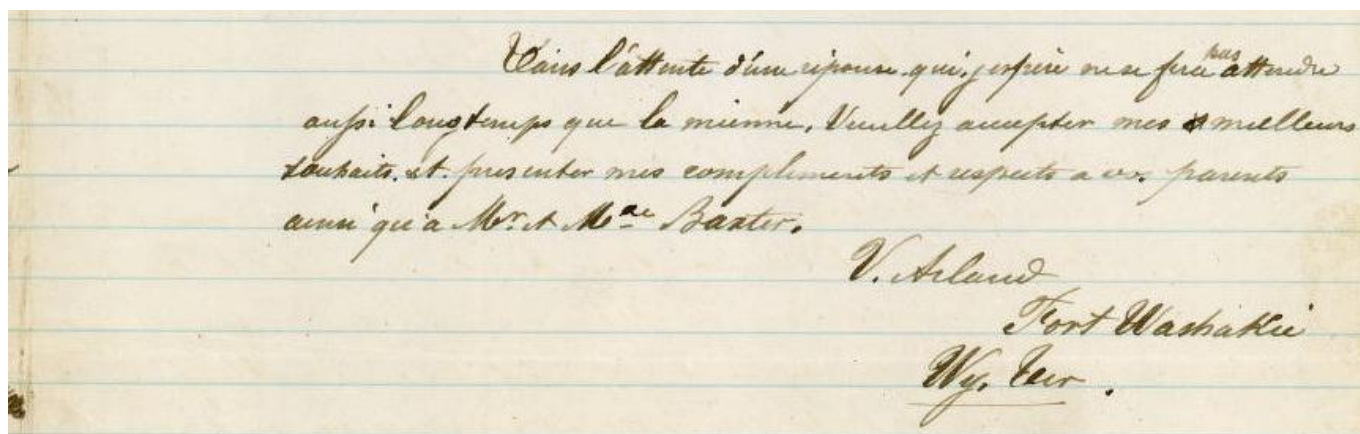 Dans l'attente d'une réponse qui, j'espère ne se fera pas attendre
aussi longtemps que la mienne. Veuillez accepter mes meilleurs
souhaits. et presenter mes compliments et respects a vos parents
ainsi qu'a Mr. et Mae Baxter.
V. Arland
Fort Washakie
Wy. Ter.